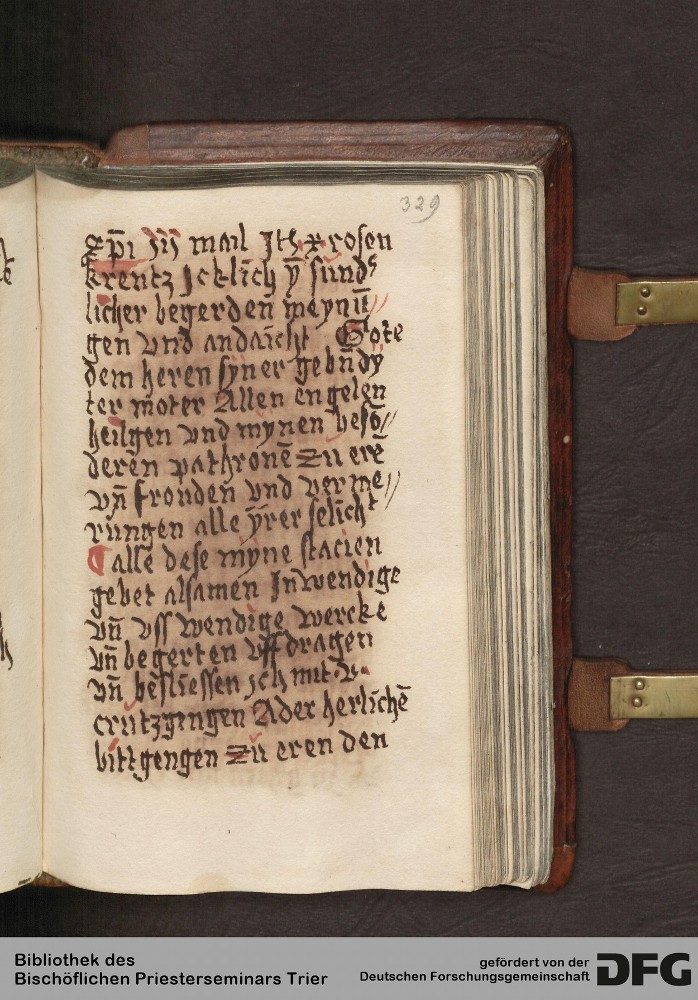 329
xp̄i iij mail Ith x rosen
krentz Icklich ȳ sunds
licher begerden meynū//
gen vnd andaicht Gote
dem heren syner gebn̄dy
ter moter Allen engelen
heilgen vnd mynen besō//
deren pathronē zu erē
vn̄ frouden vnd verme//
rungen alle yrer selicht
alle dese myne stacien
gebet alsamen Inwendige
vn̄ vss wendige wercke
vn̄ begerten vff dragen
vn̄ besliessen ich mit v.
crutzgingen Ader herlichē
bittgengen zu eren den
Bibliothek des
Bischöflichen Priesterseminars Trier
gefördert von der
Deutschen Forschungsgemeinschaft
DFG